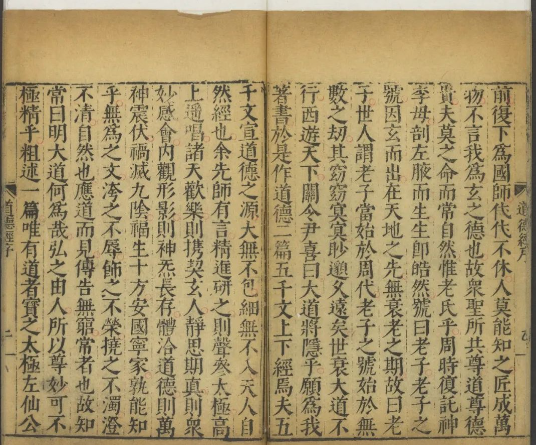 前復下為國師代代不休人莫能知之匠成萬
物不言我為玄之德也故衆聖所共尊道尊德
貴夫莫之命而常自然惟老氏乎周時復託神
李母剖左腋而生生即皓然號曰老子老子之
號因玄而出在天地之先無衰老之期故曰老
子世人謂老子當始於周代老子之號始於無
數之刼其窈窈寞寞眇邈久遠矣世衰大道不
行西遊天下關令尹喜曰大道將隱乎願為我
著書於是作道德二篇五千文上下經焉夫五
千文宣道德之源大無不包細無不入天人自
然經也余先師有言精進研之則聲叅太極高
上遥唱諸天歡樂則携契玄人靜思期真則衆
妙感會內觀形影則神炁長存體洽道德則萬
神震伏禍滅九陰福生十方安國寧家孰能知
乎無為之文涛之不辱飾之不榮撓之不濁澄
之不清自然也應道而見傳告無窮常者也故知
常曰明大道何為哉弘之由人所以尊妙可不
極精乎粗述一篇唯有道者寶之太極左仙公
道德經序